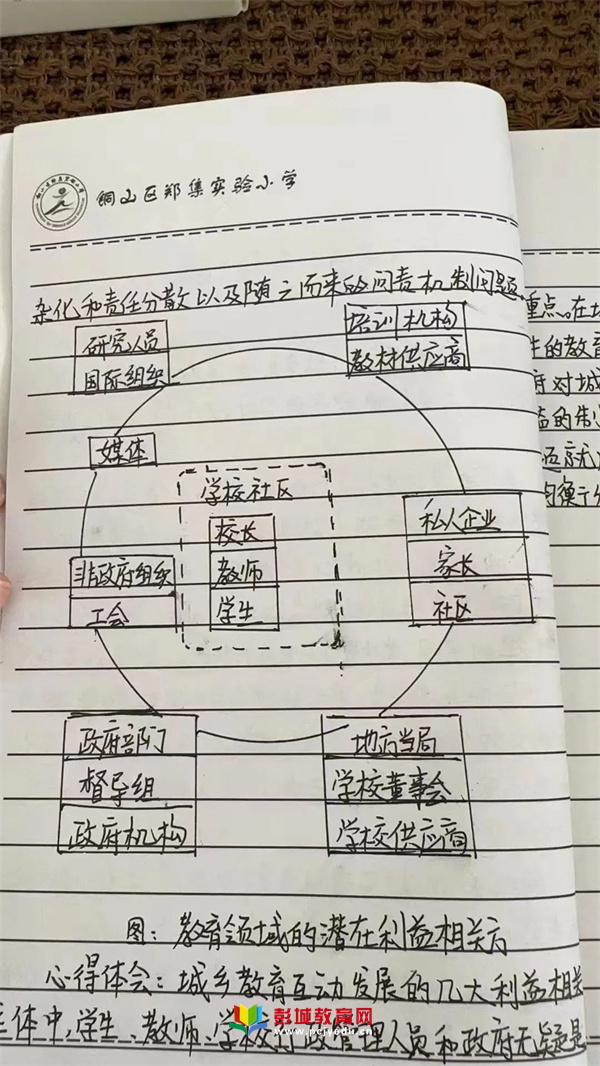 铜山区郑集实验小学
杂化和责任分散以及随之而来的问责机制问题.
研究人员
国际组织
培训机构
教材供应商
媒体
学校社区
校长
教师
学生
私人企业
家长
社区
非政府组织
工会
政府部门
督导组
政府机构
地方当局
学校董事会
学校供应商
图：教育领域的潜在利益相关方
心得体会：城乡教育互动发展的几大利益相关
主体中,学生、教师、学校行政管理人员和政府无疑是
重点。在
的教育
府对城
益的
彭城教育网
www.pcjyedu.cn